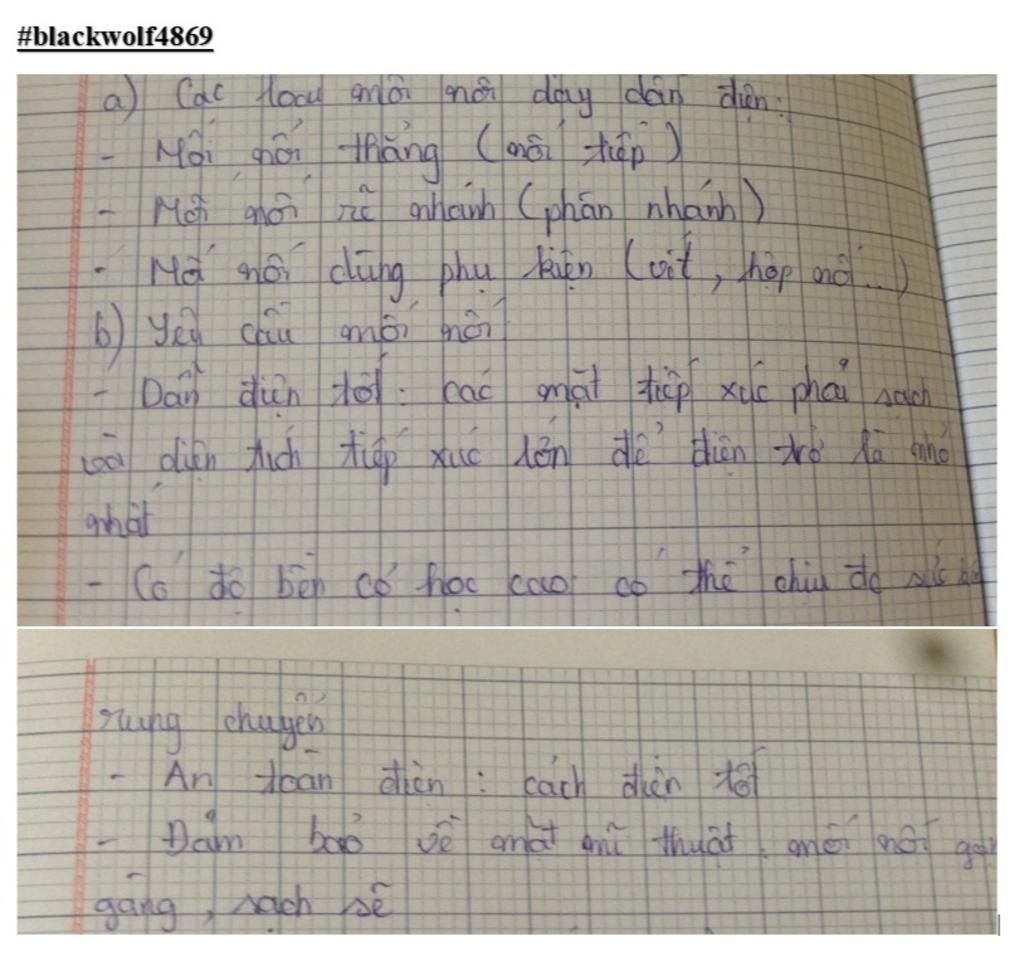 #blackwolf4869
a) Các loại mối nối dây dẫn điện:
- Mối nối thẳng (nối tiếp)
- Mối nối rẽ nhánh (phân nhánh)
- Mối nối dùng phụ kiện (vít, hộp nối...)
b) Yêu cầu mối nối
- Dẫn điện tốt: các mặt tiếp xúc phải sạch
và diện tích tiếp xúc lớn để điện trở là nhỏ
nhất
- Có độ bền cơ học cao: có thể chịu đc sức
rung chuyển
- An toàn điện: cách điện tốt
- Đảm bảo về mặt mĩ thuật: mối nối gọn
gàng, sạch sẽ